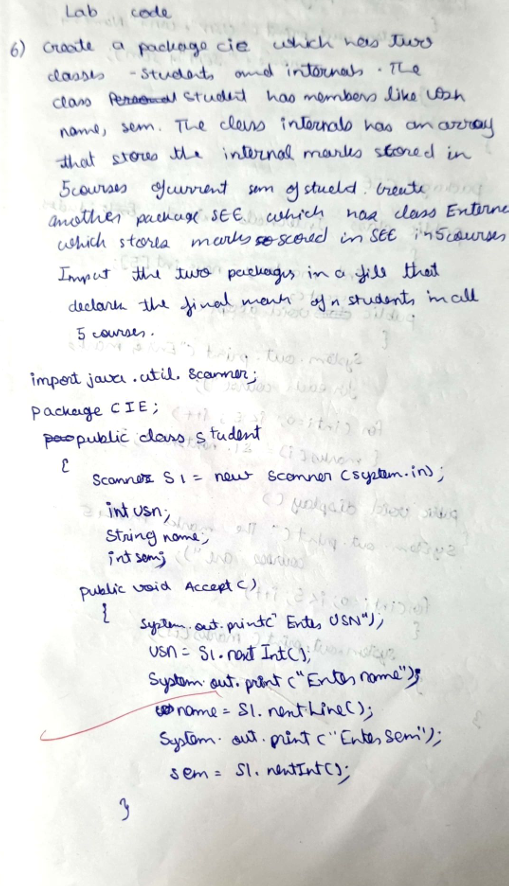 Lab code
6) Create a package cie which has two
classes - Students and internals. The
class Student has members like Usn
name, sem. The class internals has an array
that stores the internal marks scored in
5 courses of current sem of studd. Create
another package SEE which has class Externe
which stores marks scored in SEE in 5 courses
Import the two packages in a file that
declares the final mark of n students in all
5 courses.
import java.util.Scanner;
package CIE;
public class Student
{
Scanner S1 = new Scanner (System.in);
int usn;
String name;
int sem;
public void Accept()
{
System.out.print(" Enter USN");
usn = S1.next Int();
System.out.print ("Enter name");
name = S1.nextLine();
System.out.print ("Enter Sem");
sem = S1.nextInt();
}